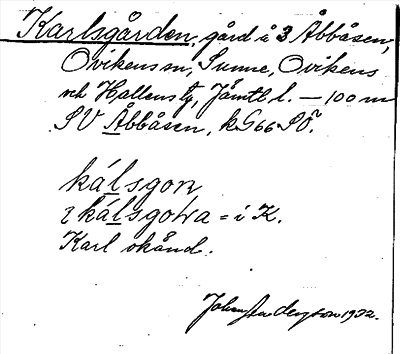 Karlsgården, gård i 3 Åbbåsen,
Ovikens sn, Sunne, Ovikens
och Hallens tg, Jämtl l. – 100 m
SV Åbbåsen, kG66 SÖ.
kálsgoṇ
i kálsgoɯa = i K.
Karl okänd.
Johan Andersson 1932.